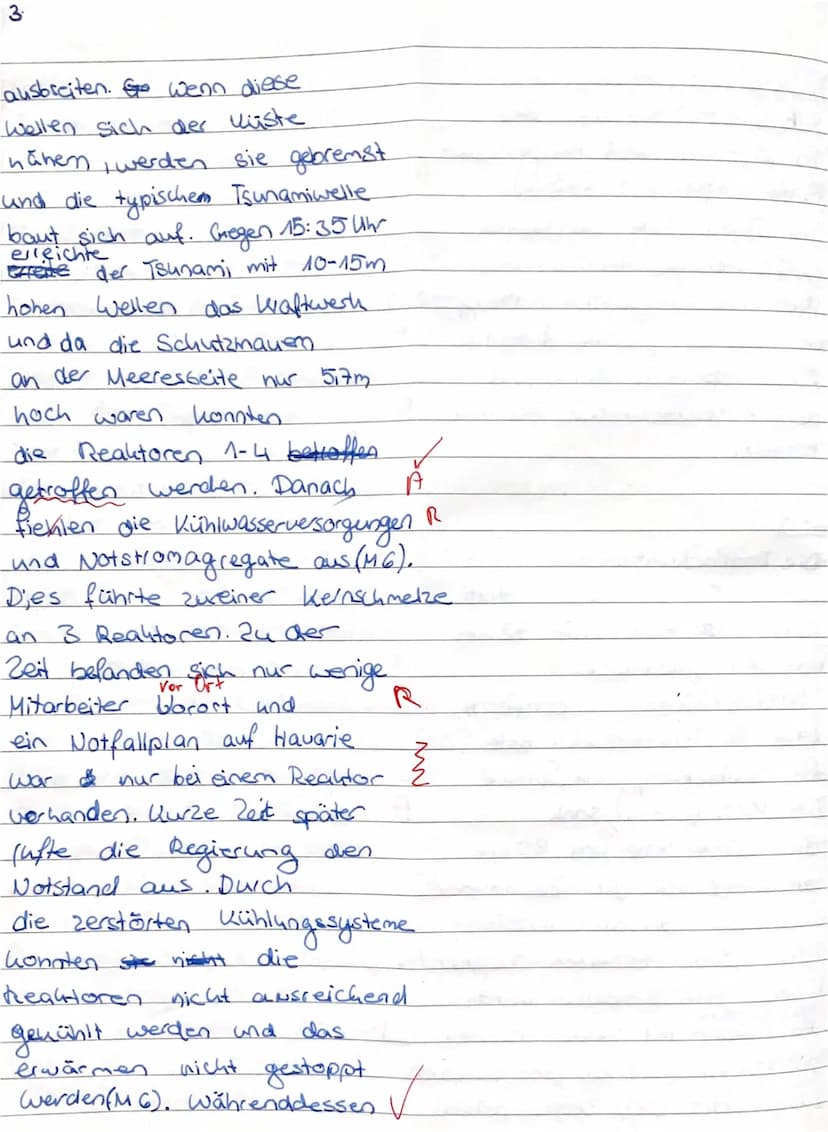 3.
ausbreiten. So wenn diese
wellen sich der Küste
nähern, werden sie gebremst
und die typischen Tsunamiwelle
baut sich auf. Gegen 15:35 Uhr
erreichte
der Tsunami mit 10-15m
hohen Wellen das Kraftwerk
und da die Schutzmauern
an der Meeresseite nur 5,7m
hoch waren konnten
die Reaktoren 1-4 betroffen ✓
getroffen werden. Danach A
fiehlen die Kühlwasserversorgungen R
und Notstromagregate aus (M6).
Dies führte zu einer Kernschmelze
an 3 Reaktoren. Zu der
Zeit befanden sich nur wenige
vor Ort
Mitarbeiter vorort und R
ein Notfallplan auf Havarie
war nur bei einem Reaktor
vorhanden. Kurze Zeit später
rufte die Regierung den
Notstand aus. Durch
die zerstörten Kühlungssysteme
konnten sie nicht die
Reaktoren nicht ausreichend
gekühlt werden und das
erwärmen nicht gestoppt
werden (M6). Währenddessen ✓